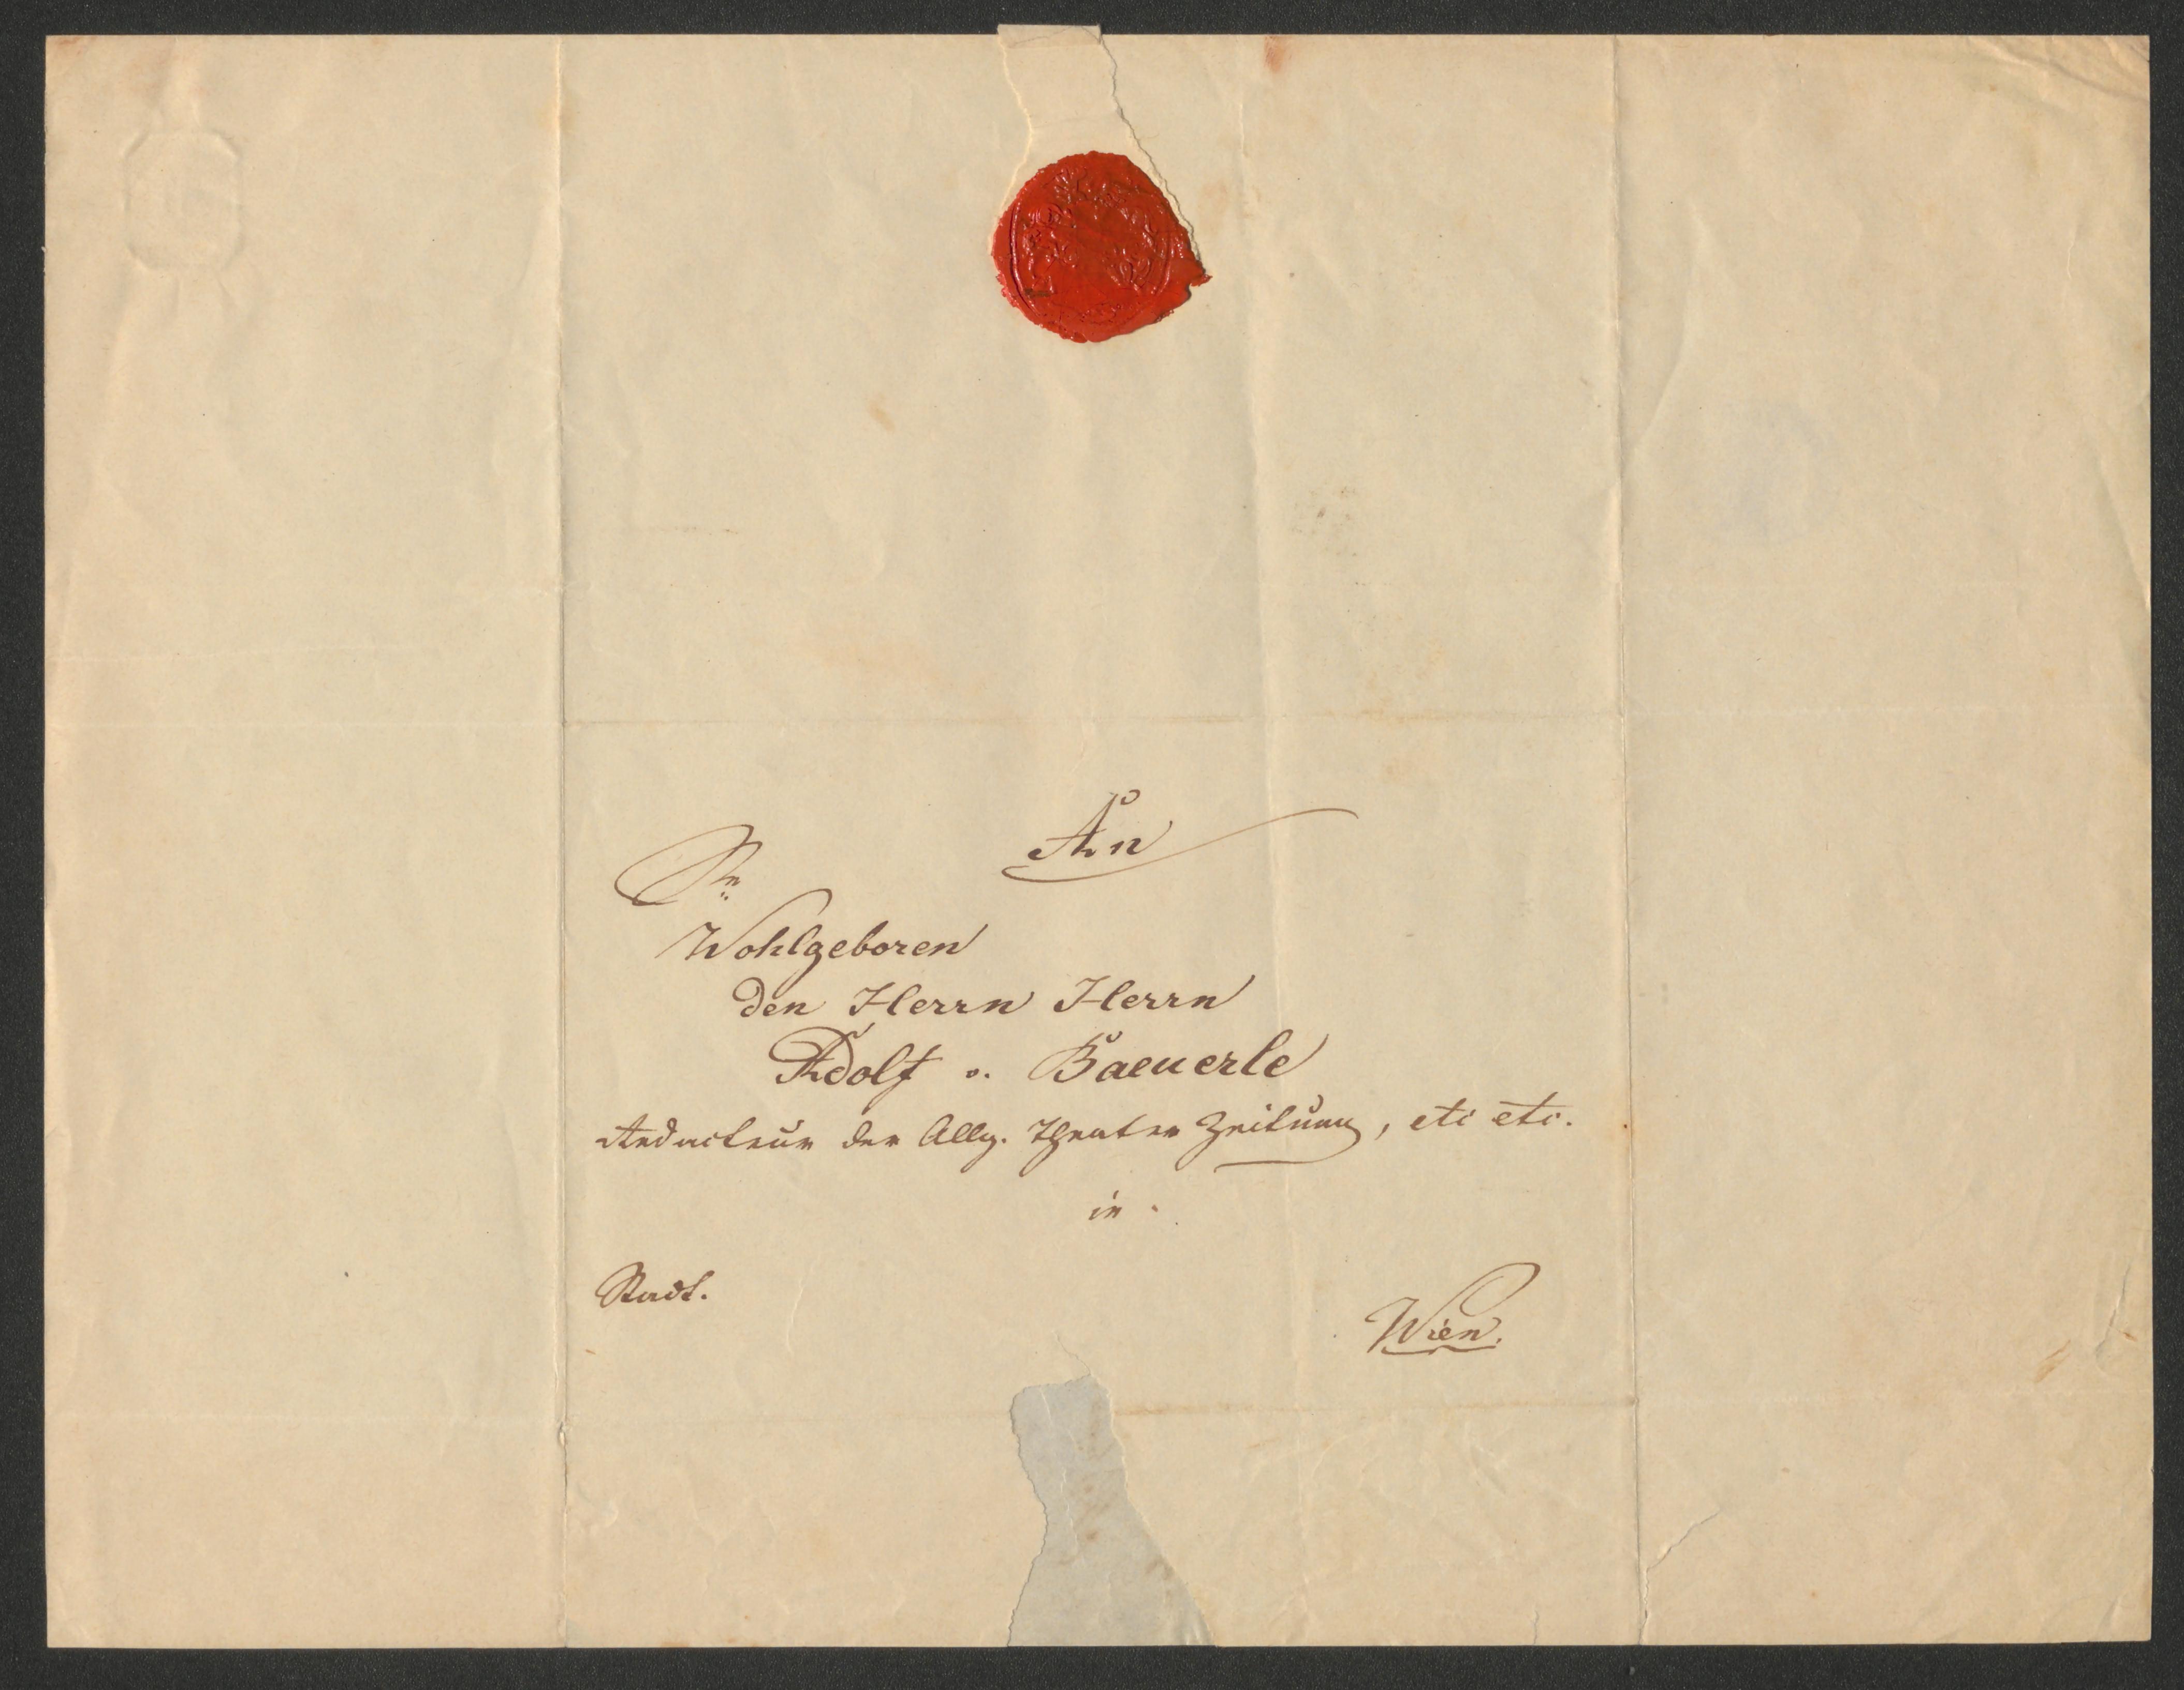 An
Sr
Wohlgeboren
den Herrn Herrn
Adolf v. Baeuerle
Redacteur der Allg. Theater Zeitung, etc etc.
in
Stadt.
Wien.